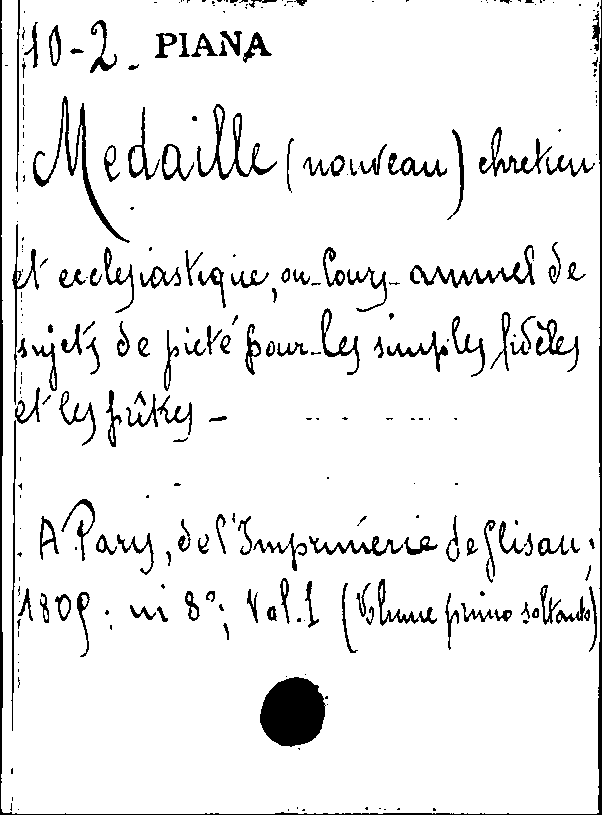 10-2. PIANA
Medaille (nouveau) chretien
et ecclesiastique, ou Cours annuel de
sujets de pieté pour les simples fidèles
et les prêtres -
A Paris, de l'Imprimerie de Glisau.
1809: in 8°; Vol. 1 (Volume primo soltanto)